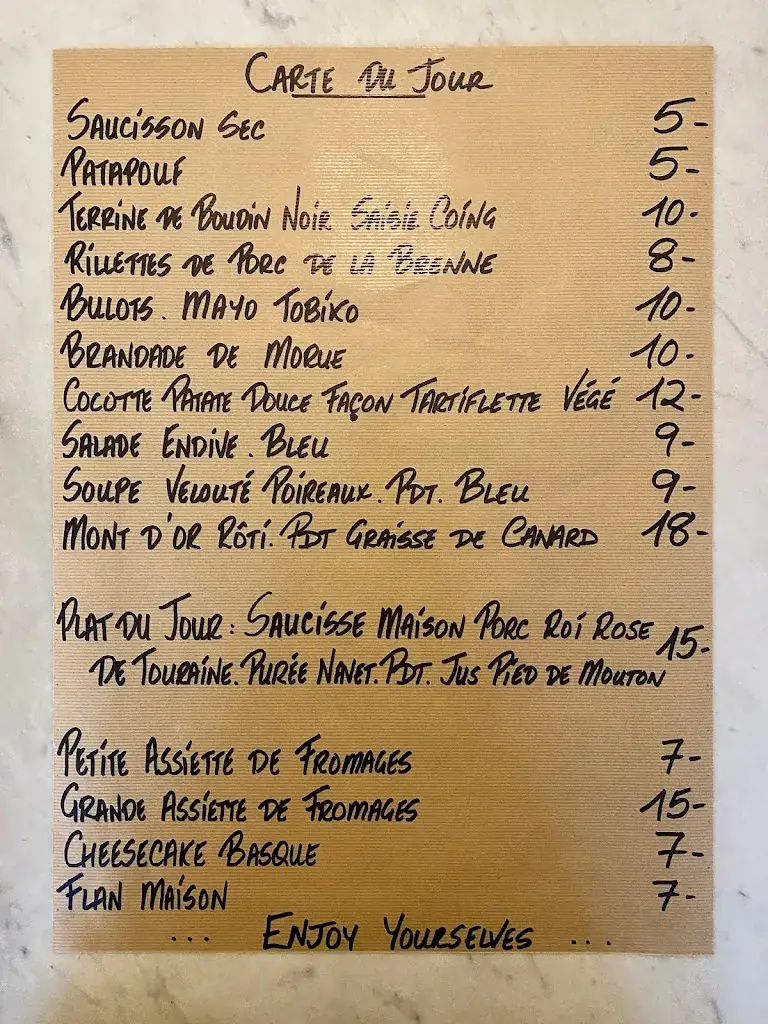 CARTE DU JOUR
SAUCISSON SEC 5-
PATAPOUF 5-
TERRINE DE BOUDIN NOIR SAISIE COING 10-
RILLETTES DE PORC DE LA BRENNE 8-
BULOTS. MAYO TOBIKO 10-
BRANDADE DE MORUE 10-
COCOTTE PATATE DOUCE FAÇON TARTIFLETTE VÉGÉ 12-
SALADE ENDIVE. BLEU 9-
SOUPE VELOUTÉ POIREAUX. PDT. BLEU 9-
MONT D'OR RÔTI. PDT GRAISSE DE CANARD 18-
PLAT DU JOUR: SAUCISSE MAISON PORC ROI ROSE 15-
DE TOURAINE. PURÉE NAVET. PDT. JUS PIED DE MOUTON
PETITE ASSIETTE DE FROMAGES 7-
GRANDE ASSIETTE DE FROMAGES 15-
CHEESECAKE BASQUE 7-
FLAN MAISON 7-
... ENJOY YOURSELVES ...